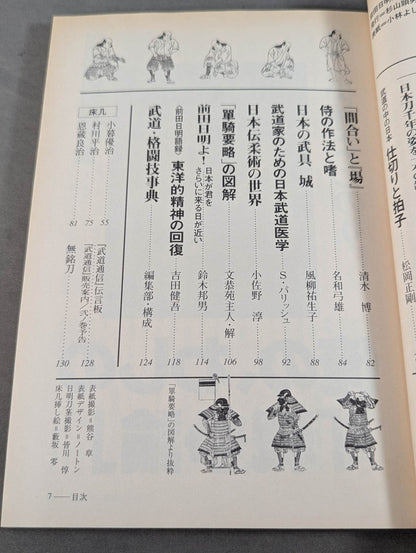 日本刀千年の姿を
武道の中の日本 仕切りと拍子
松岡正剛
「間合い」と「場」 清水 博 82
侍の作法と嗜 名和弓雄 84
日本の武具 城 風柳祐生子 88
武道家のための日本武道医学 S・パリッシュ 92
日本伝柔術の世界 小佐野 淳 98
「單騎要略」の図解 文恭苑主人・解 106
前田日明よ! 日本が君を さらいに来る日が近い 鈴木邦男 114
〈前田日明語録〉 東洋的精神の回復 吉田健吾 118
武道・格闘技事典 編集部・構成 124
床几
小暮優治 55
村川平治 75
恩蔵良治 81
「武道通信」伝言板
「武道通信」販売案内/弐ノ巻予告 128
無銘刀 130
「單騎要略」の図解より抜粋
表紙撮影=熊谷 章
表紙デザイン=ノートン
日明刀茎撮影=皆川 惇
床几挿し絵=藪坂 零
7——目次